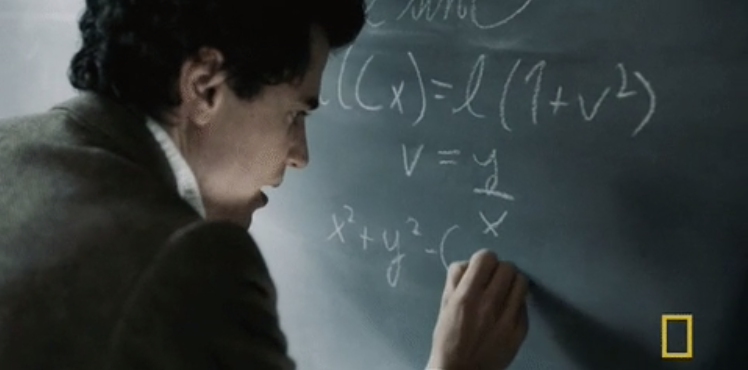 l(Cx)=l(1+v²)
v = y/x
x²+y²-(